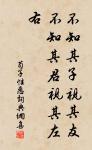 不知其子視其友
不知其君視其左
右
荀子性惡詞典網集